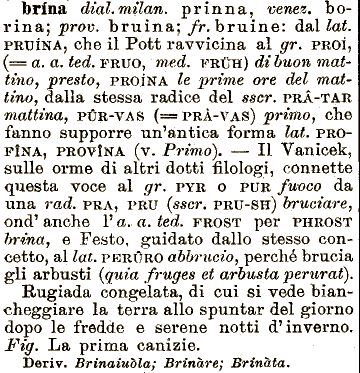 brina dial. milan. prinna, venez. bo-
rina; prov. bruina; fr. bruine: dal lat.
PRUÍNA, che il Pott ravvicina al gr. PROÍ,
(= a. a. ted. FRUO, med. FRÜH) di buon mat-
tino, presto, PROÍNA le prime ore del mat-
tino, dalla stessa radice del sscr. PRÂ-TAR
mattina, PÛR-VAS (= PRÀ-VAS) primo, che
fanno supporre un'antica forma lat. PRO-
FÎNA, PROVÎNA (v. Primo). — Il Vanicek,
sulle orme di altri dotti filologi, connette
questa voce al gr. PYR o PUR fuoco da
una rad. PRA, PRU (sscr. PRU-SH) bruciare,
ond' anche l'a. a. ted. FROST per PHROST
brina, e Festo, guidato dallo stesso con-
cetto, al lat. PERÛRO abbrucio, perché brucia
gli arbusti (quia fruges et arbusta perurat).
Rugiada congelata, di cui si vede bian-
cheggiare la terra allo spuntar del giorno
dopo le fredde e serene notti d'inverno.
Fig. La prima canizie.
Deriv. Brinaiuòla; Brinàre; Brinàta.